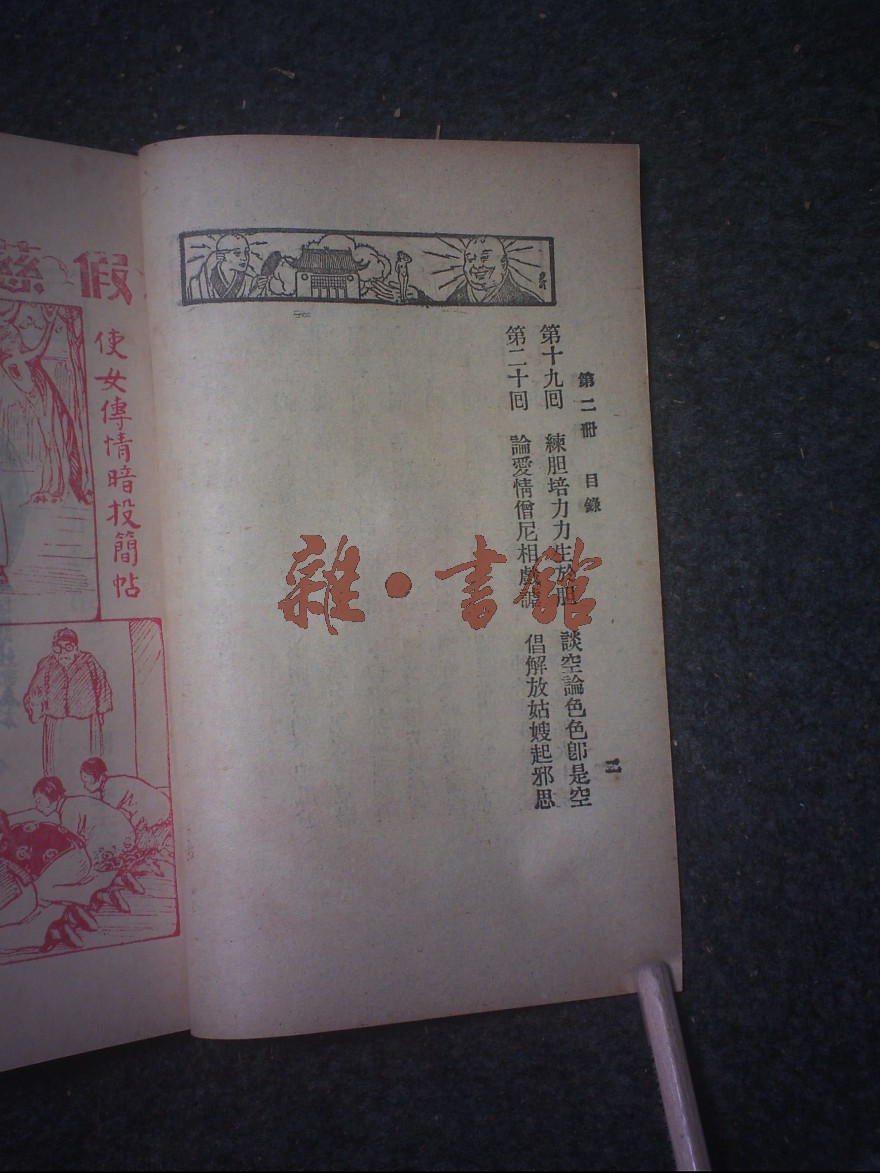 第二冊 目錄
第十九回 練胆培力力生於胆 談空論色色卽是空
第二十回 論愛情僧尼相戲謔 倡解放姑嫂起邪思
假慈
使女傳情暗投簡帖
雜·書館